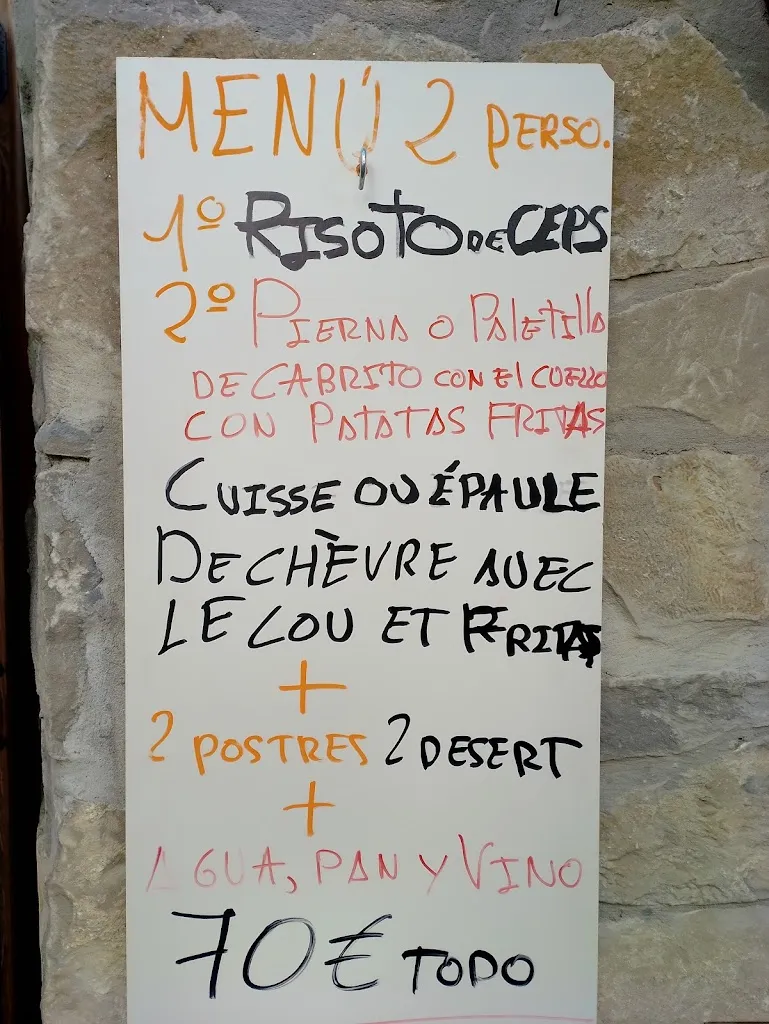 MENÚ 2 PERSO.
1º RISOTO DE CEPS
2º PIERNA O PALETILLA
DE CABRITO CON EL CUELLO
CON PATATAS FRITAS
CUISSE OU ÉPAULE
DE CHÈVRE AVEC
LE COU ET FRITAS
+
2 POSTRES 2 DESERT
+
AGUA, PAN Y VINO
70€ TODO